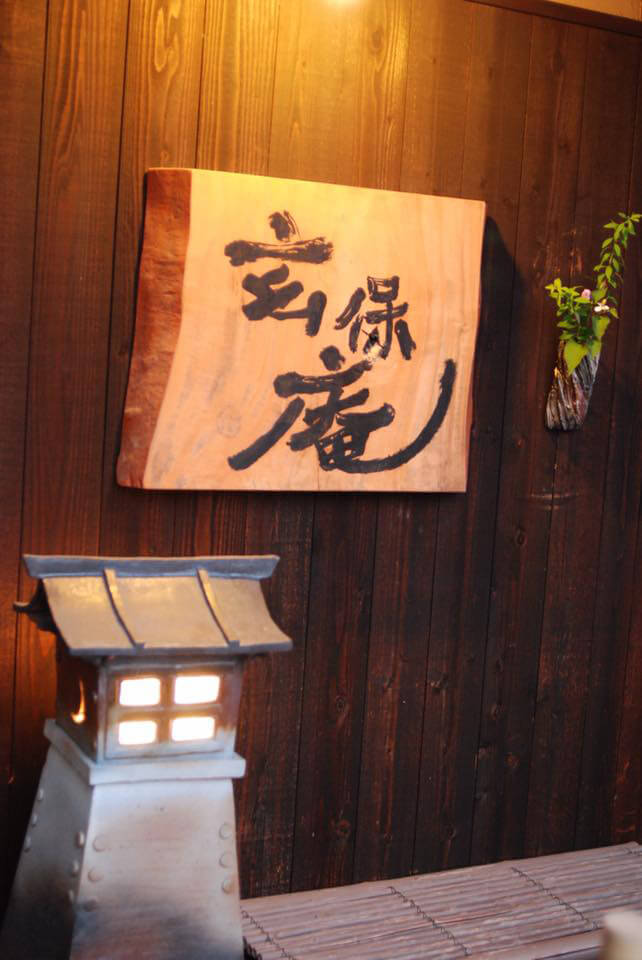 玄
保
庵